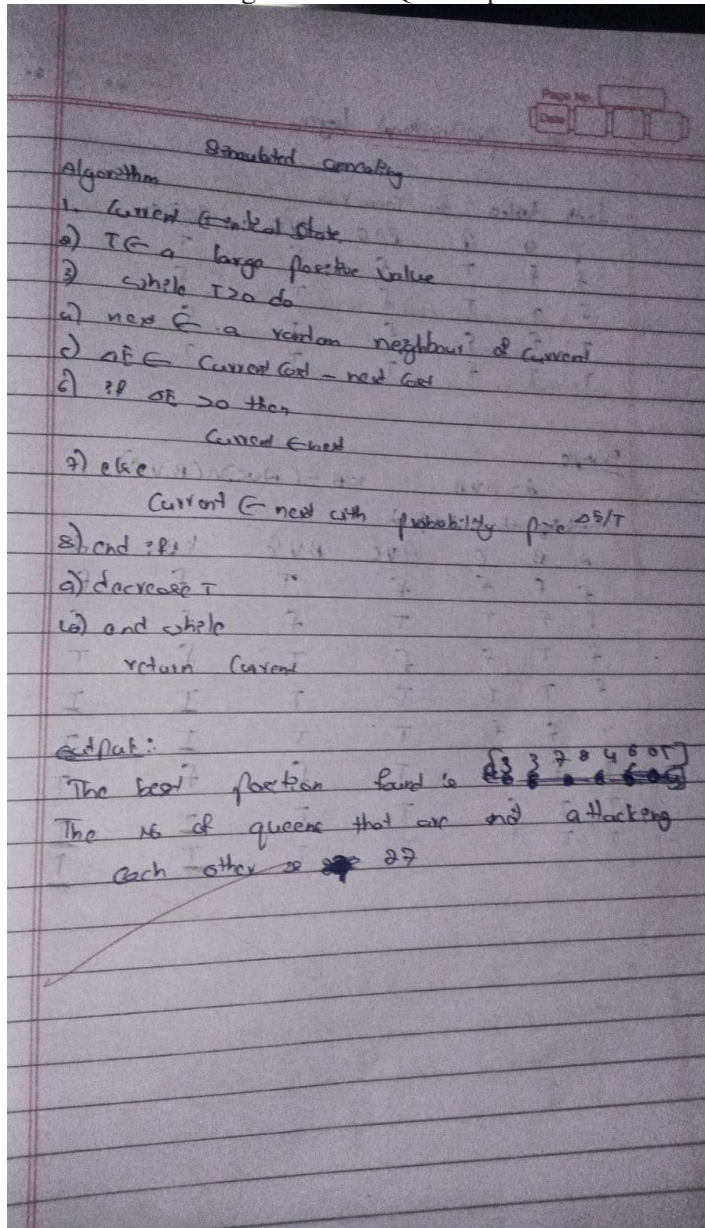 Page No.
Date
Simulated annealing
Algorithm
1. Current ← initial state
2) T ← a large positive value
3) while T>0 do
4) next ← a random neighbour of Current
5) ΔE ← Current Cost - next Cost
6) if ΔE >0 then
Current ← next
7) else
Current ← next with probability ΔE/T
8) end if
9) decrease T
10) end while
return Current
Output:
The best position found is [3 3 7 8 4 6 0 5]
The no of queens that are not attacking
each other is 27